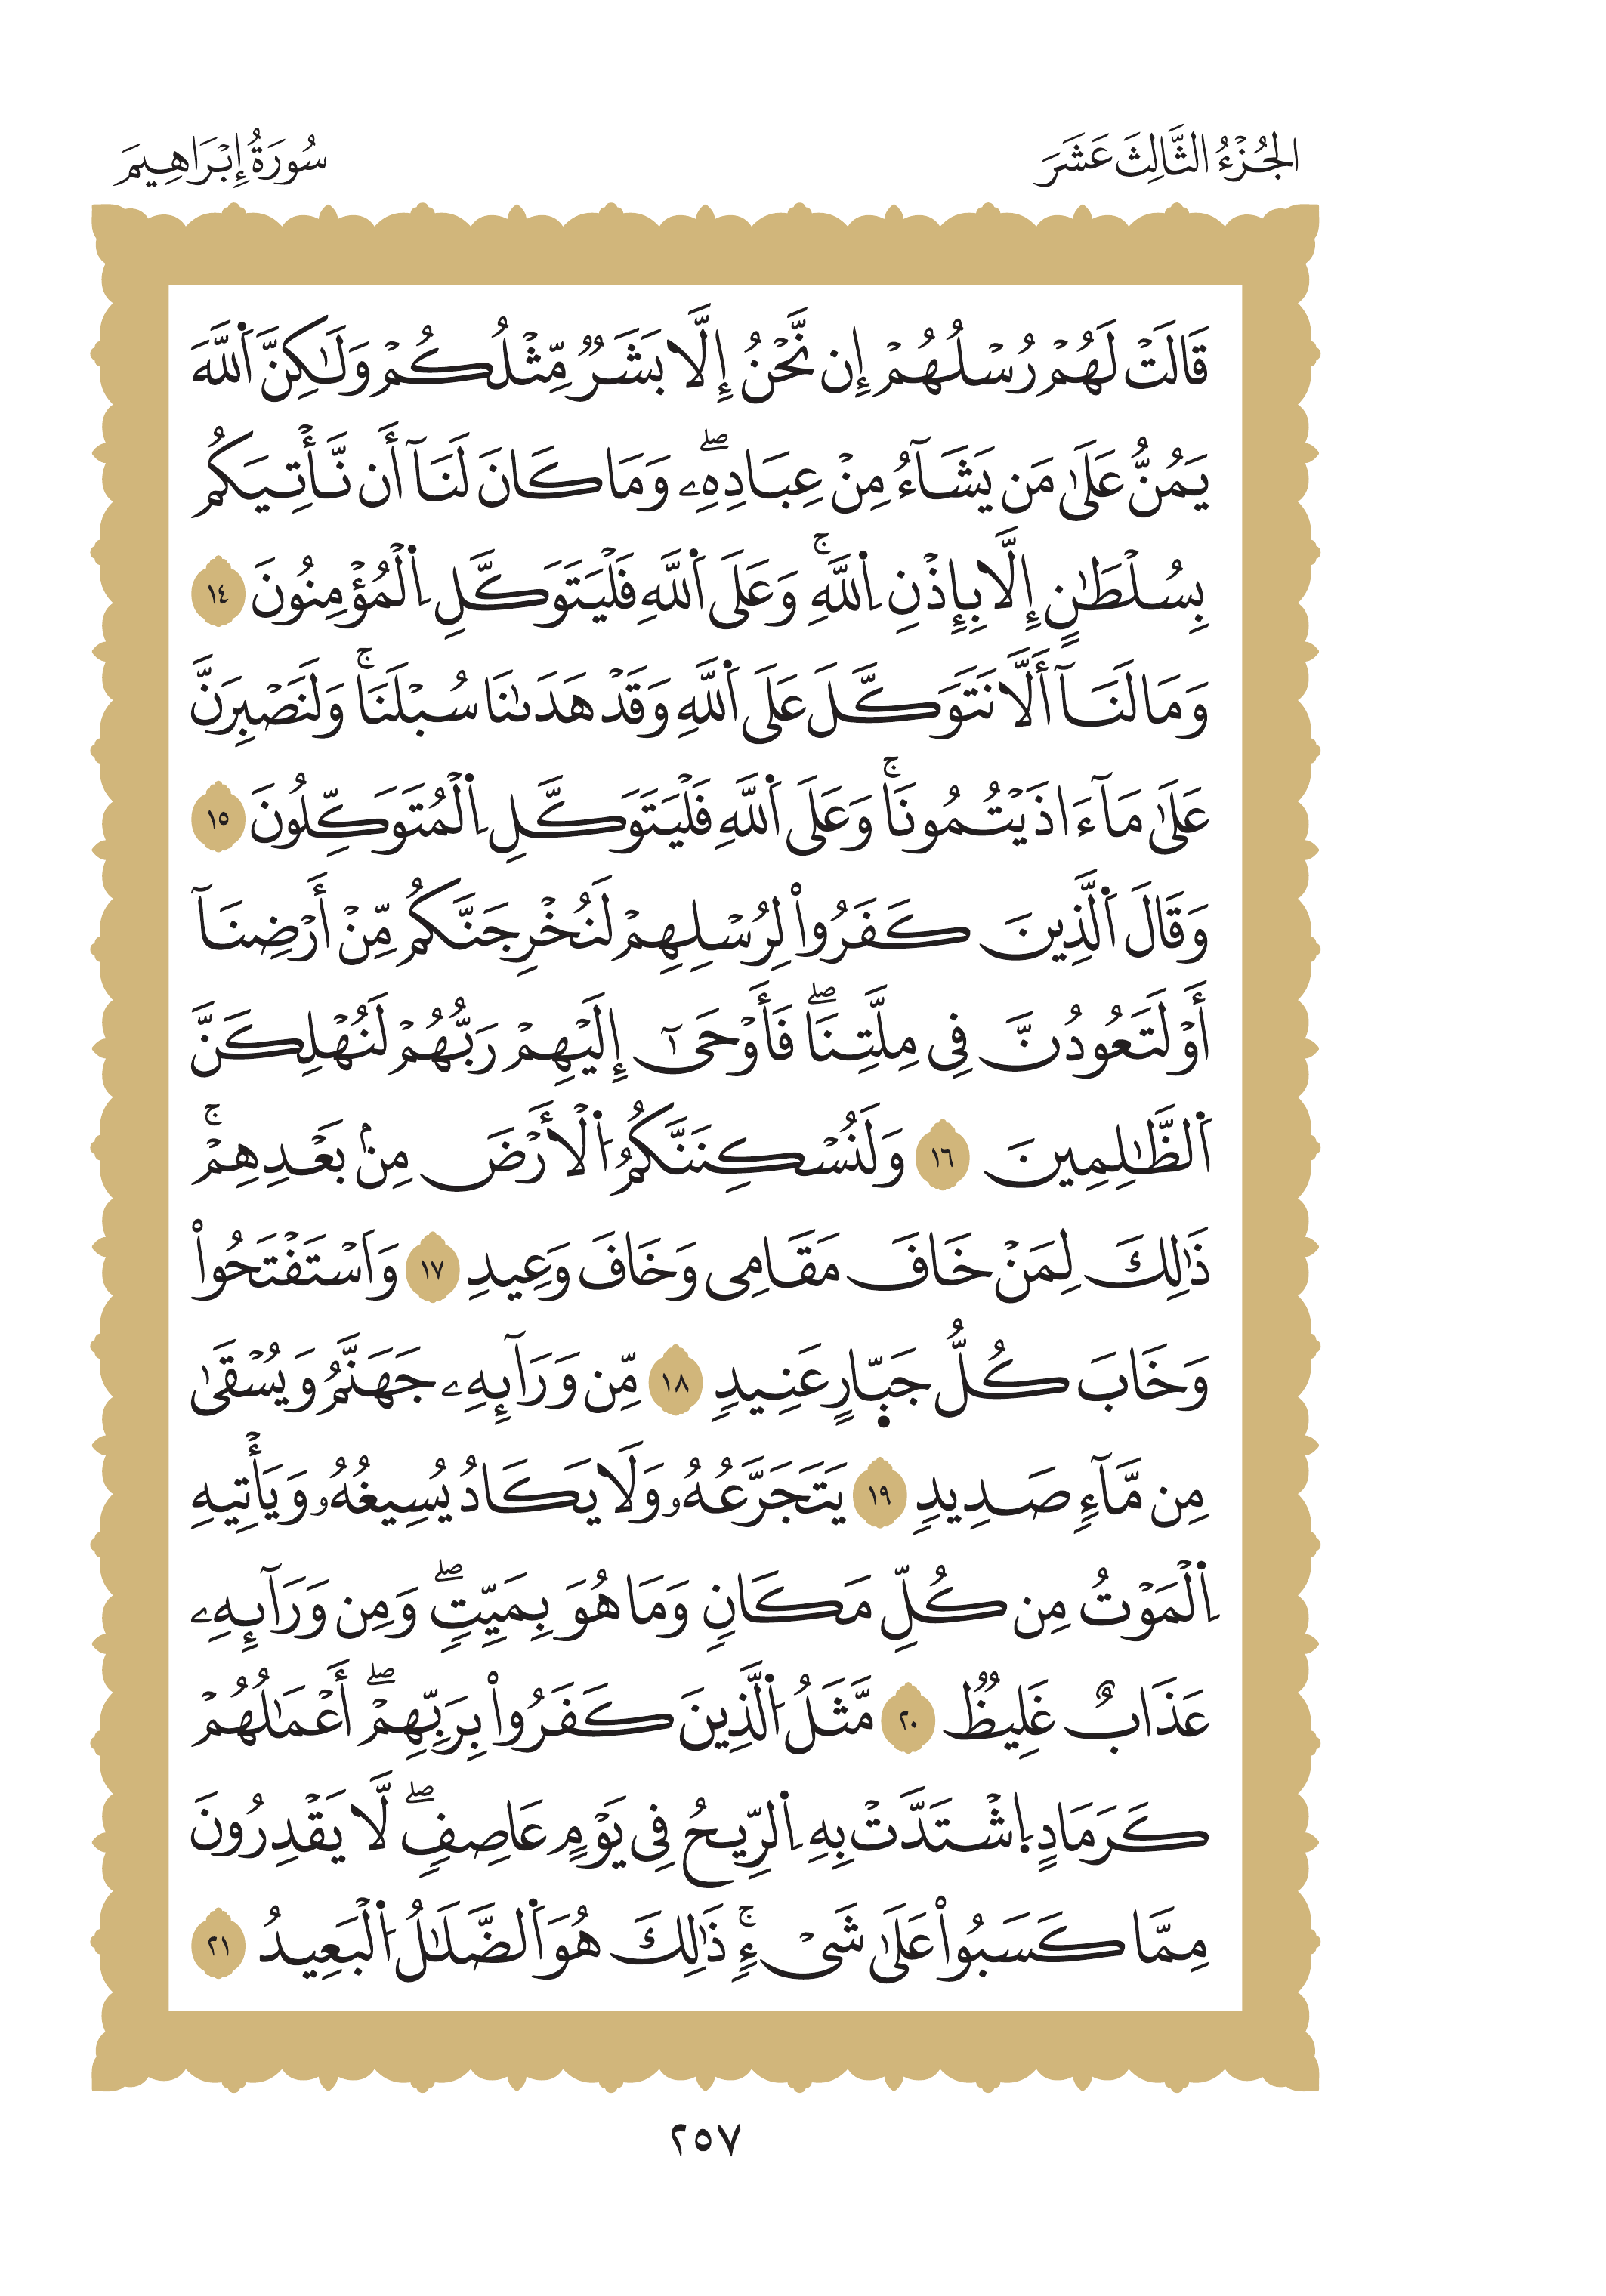 الجُزْءُ الثَّالِثَ عَشَرَ
سُورَةُ إِبْرَاهِيمَ
قَالَتْ لَهُمْ رُسْلُهُمْ إِن نَّحْنُ إِلَّا بَشَرٌ مِّثْلُكُمْ وَلَٰكِنَّ اَ۬للَّهَ
يَمُنُّ عَلَىٰ مَن يَشَآءُ مِنْ عِبَادِهِۦۖ وَمَا كَانَ لَنَآ أَن نَّأْتِيَكُم
بِسُلْطَٰنٍ إِلَّا بِإِذْنِ اِ۬للَّهِۚ وَعَلَى اَ۬للَّهِ فَلْيَتَوَكَّلِ اِ۬لْمُؤْمِنُونَ ١٤
وَمَا لَنَآ أَلَّا نَتَوَكَّلَ عَلَى اَ۬للَّهِ وَقَدْ هَدَىٰنَا سُبْلَنَاۚ وَلَنَصْبِرَنَّ
عَلَىٰ مَآ ءَاذَيْتُمُونَاۚ وَعَلَى اَ۬للَّهِ فَلْيَتَوَكَّلِ اِ۬لْمُتَوَكِّلُونَ ١٥
وَقَالَ اَ۬لَّذِينَ كَفَرُواْ لِرُسْلِهِمْ لَنُخْرِجَنَّكُم مِّنْ أَرْضِنَآ
أَوْ لَتَعُودُنَّ فِى مِلَّتِنَاۖ فَأَوْحَىٰٓ إِلَيْهِمْ رَبُّهُمْ لَنُهْلِكَنَّ
اَ۬لظَّٰلِمِينَ ١٦ وَلَنُسْكِنَنَّكُمُ اُ۬لْأَرْضَ مِنۢ بَعْدِهِمْۚ
ذَٰلِكَ لِمَنْ خَافَ مَقَامِى وَخَافَ وَعِيدِ ١٧ وَاَسْتَفْتَحُواْ
وَخَابَ كُلُّ جَبّ۪ارٍ عَنِيدٍ ١٨ مِّن وَرَآئِهِۦ جَهَنَّمُ وَيُسْقَىٰ
مِن مَّآءٍ صَدِيدٍ ١٩ يَتَجَرَّعُهُۥ وَلَا يَكَادُ يُسِيغُهُۥ وَيَأْتِيهِ
اِ۬لْمَوْتُ مِن كُلِّ مَكَانٍ وَمَا هُوَ بِمَيِّتٍۖ وَمِن وَرَآئِهِۦ
عَذَابٌ غَلِيظٌ ٢٠ مَّثَلُ اُ۬لَّذِينَ كَفَرُواْ بِرَبِّهِمْۖ أَعْمَٰلُهُمْ
كَرَمَادٍ اِ۪شْتَدَّتْ بِهِ اِ۬لرِّيحُ فِى يَوْمٍ عَاصِفٍۖ لَّا يَقْدِرُونَ
مِمَّا كَسَبُواْ عَلَىٰ شَىْءٍۚ ذَٰلِكَ هُوَ اَ۬لضَّلَٰلُ اُ۬لْبَعِيدُ ٢١
٢٥٧